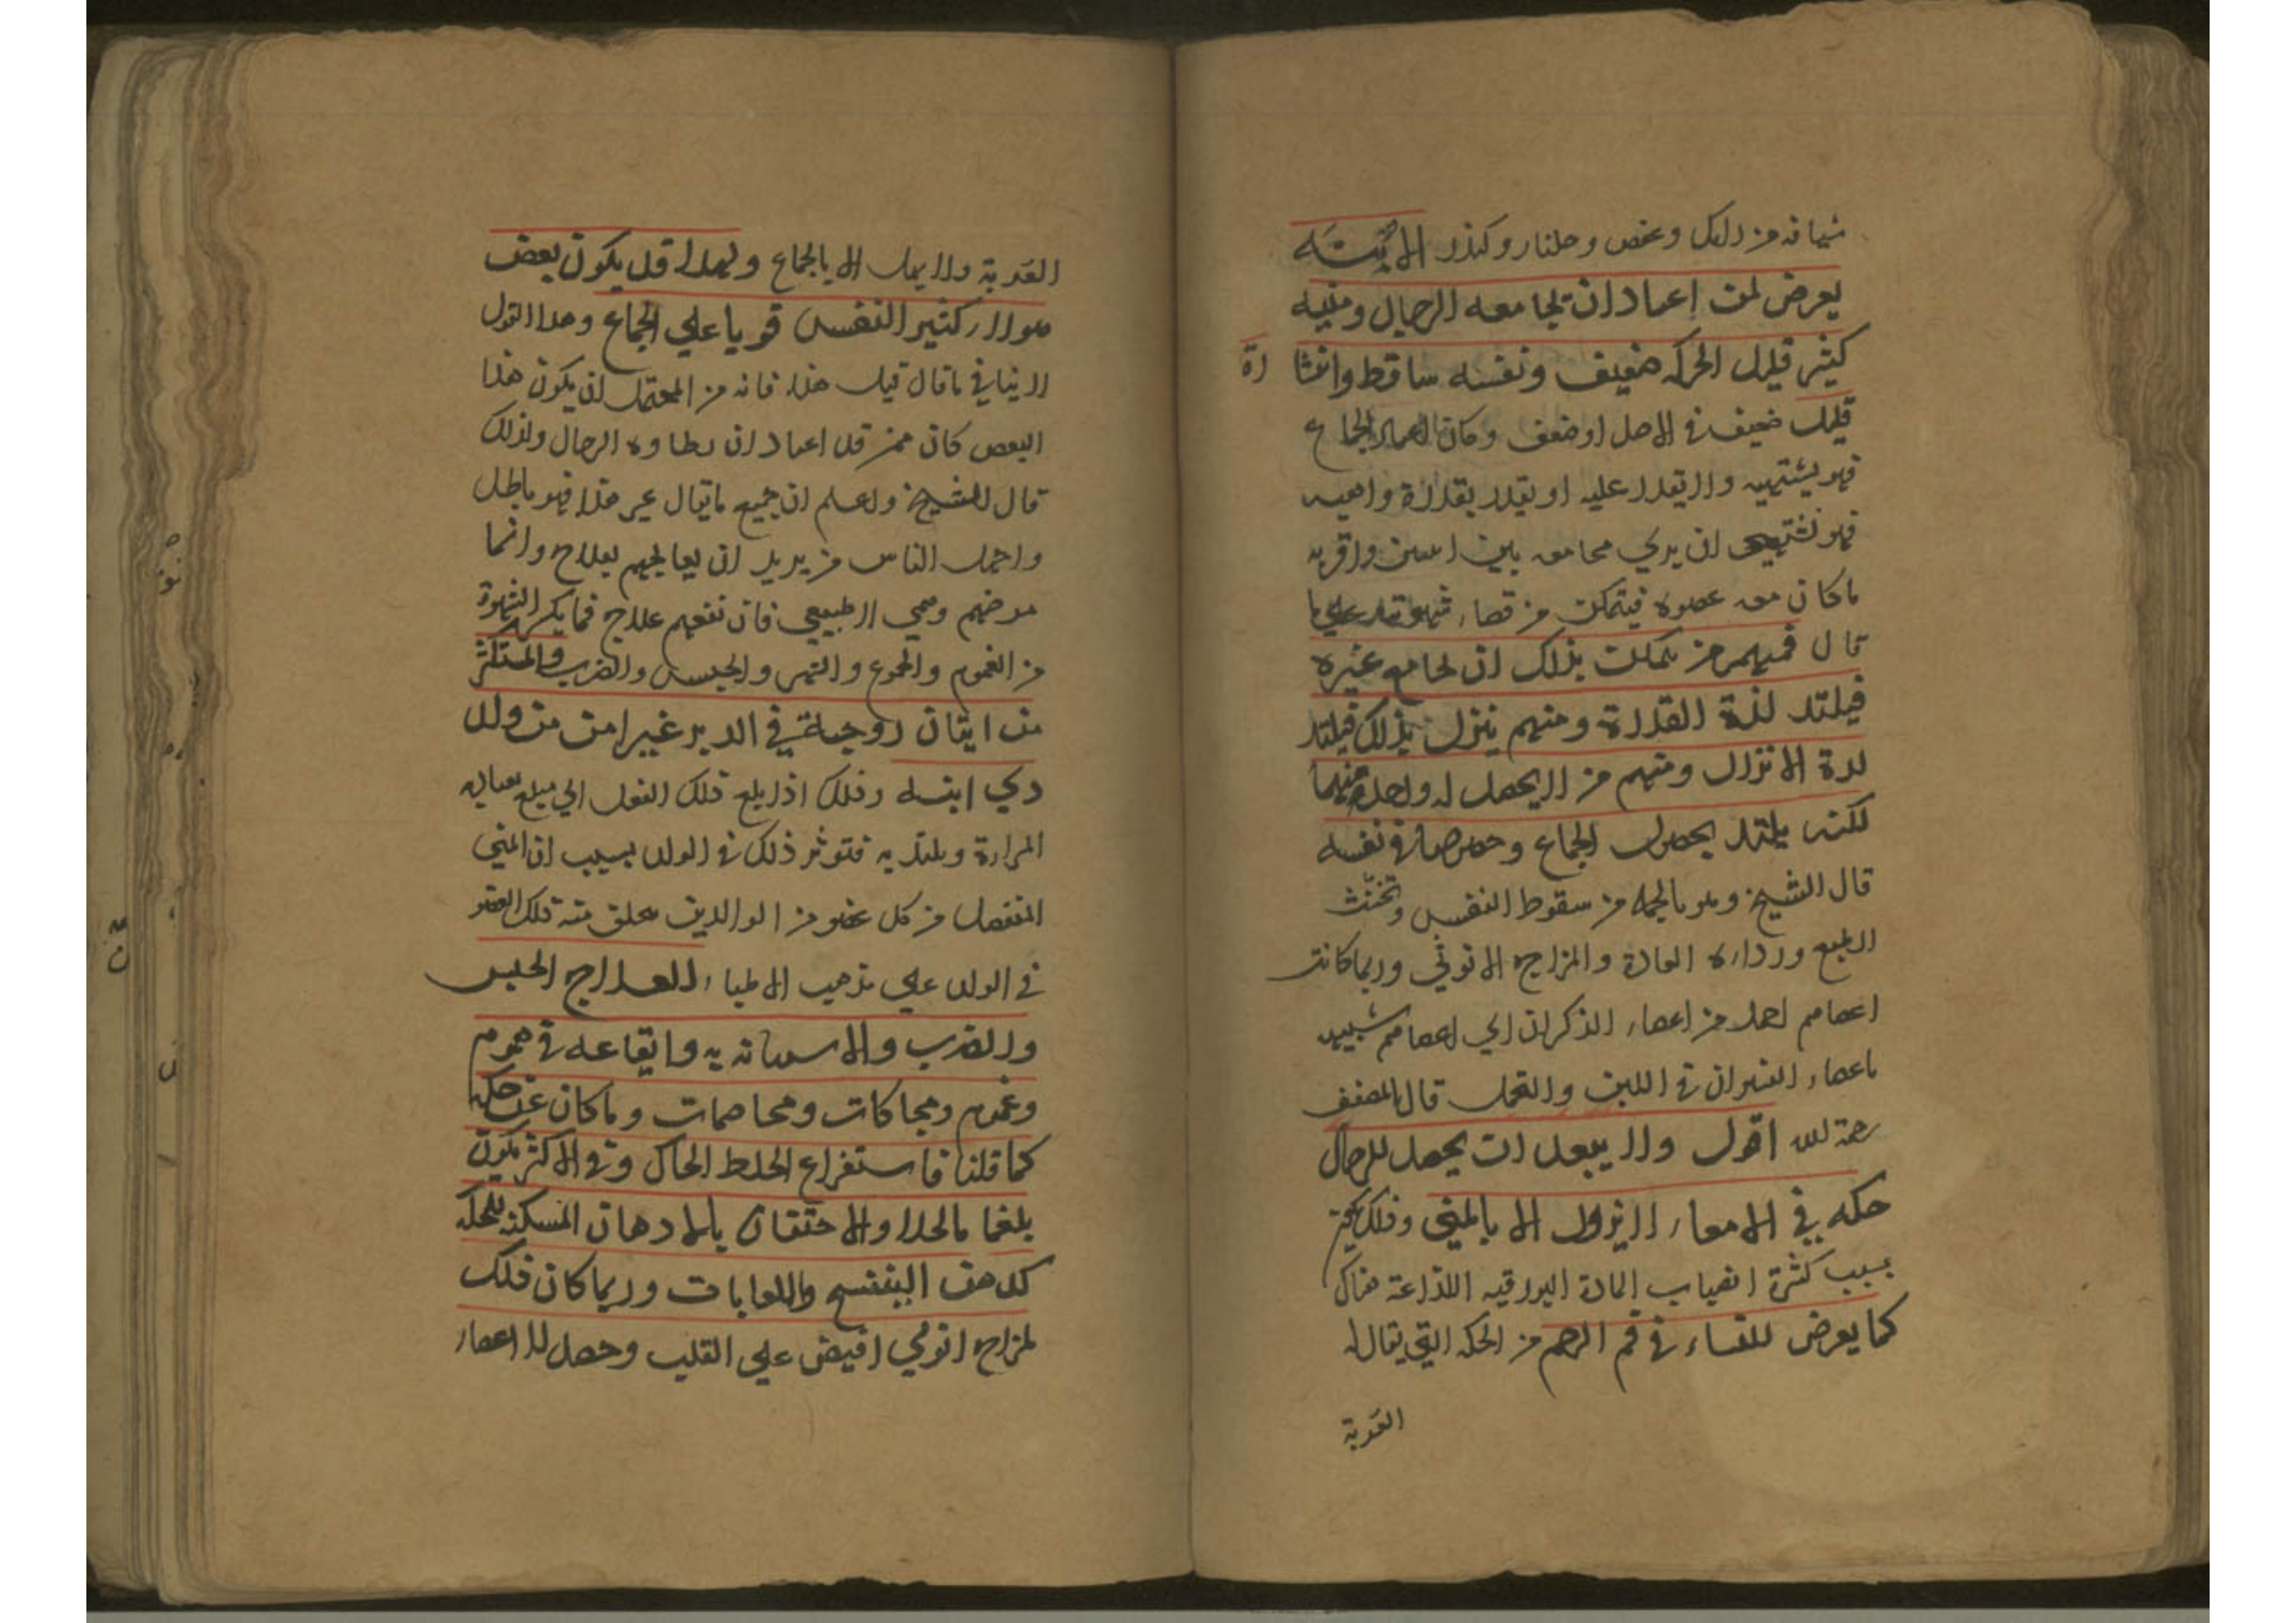 شيافه من رامك وعفص وجلنار وكندر الابنه
يعرض لمن اعتاد ان تجامعه الرجال ومنيه
كثير قليل الحركه ضعيف ونفسه ساقط وانتشا
رة
قليل ضعيف في الاصل او ضعف وكان اعتاد الجماع
فهو يشتهيه ولا يقدر عليه او يقدر بقدرة واهيه
فهو تشتهي ان يري مجامعه بين اثنين واقربه
ما كان معه عضوه فيتمكن من قضاء شهوته علي ما
قال فمنهم من يتمكن بذلك ان يجامع غيره
فيلتذ لذة القدرة ومنهم ينزل بذلك فيلتذ
لذة الانزال ومنهم من لا يحصل له واحدة منهما
لكنه يلتذ بحصول الجماع وخصوصا في نفسه
قال الشيخ وهو بالجملة من سقوط النفس وتخنث
الطبع ورداءة العادة والمزاج الانوثي وربما كانت
اعضاهم اجمل من اعضاء الذكران اي اعضاهم شبيهه
باعضاء في اللين قال المصنف
رحمة الله اقول ولا يبعد ان يحصل للرجال
حكه في الامعاء لا تزول الا بالمني وذلك
بسبب كثرة انصباب المادة البورقيه اللذاعة هناك
كما يعرض للنساء في فم الرحم من الحكه التي يقال له
العذبة
العذبة ولا يمل الا بالجماع ولهذا قد يكون بعض
هولاء كثير النفس قويا علي الجماع وهذا القول
لا ينافي ما قال قبل هذا فانه من المحتمل ان يكون هذا
البعض كان ممن قد اعتاد ان يطاوه الرجال ولذلك
قال الشيخ واعلم ان جميع ما يقال غير هذا فهو باطل
واجهل الناس من يريد ان يعالجهم بعلاج وانما
مرضهم وهمي لا طبيعي فان نفعهم علاج فما يكسر الشهوة
من الغموم والجوع والسهر والحبس والضرب والمستكثر
من اتيان زوجته في الدبر غير امن من ولد
ذي ابنه وذلك اذا بلغ ذلك الفعل الي مبلغ
المرارة ويلتذ به فتوثر ذلك في الولد بسبب ان المني
المنفصل من كل عضو من الوالدين يتخلق منه ذلك العضو
في الولد علي مذهب الاطباء العلاج الحبس
والضرب والاستهانه به وايقاعه في هموم
وغموم ومحاكات ومخاصمات وما كان عن حكه
كما قلنا فاستفراغ الخلط الحاك وفي الاكثر يكون
بلغما مالحا والاحتقان بالادهان المسكنه للحكه
كدهن البنفسج واللعابات وربما كان ذلك
لمزاج انوثي افيض علي القلب وحصل للاعضاء